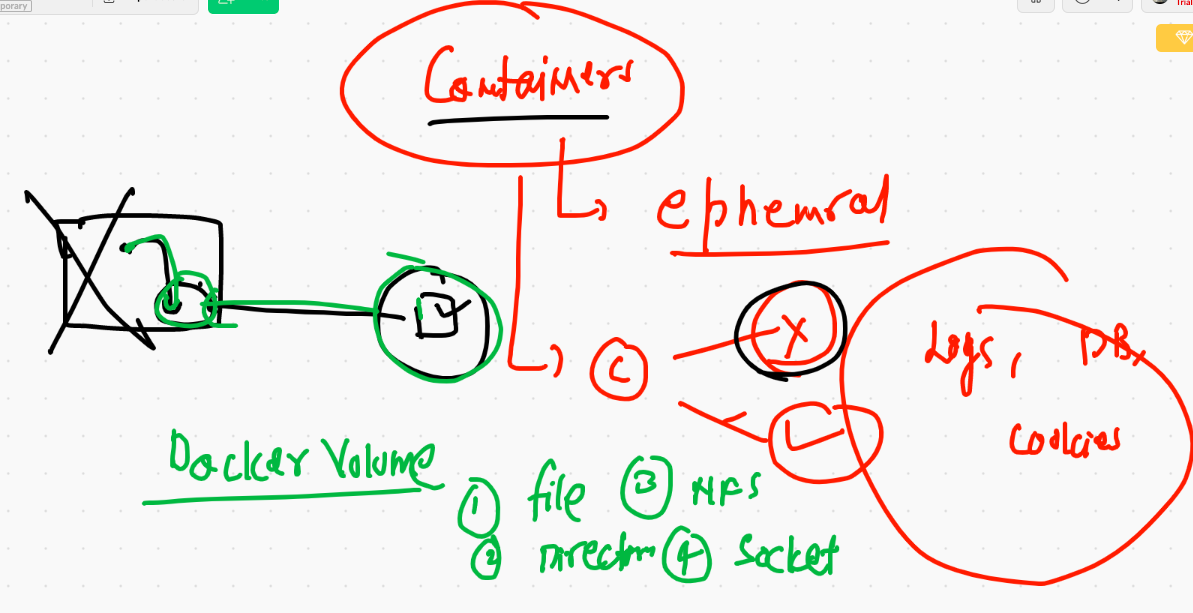 porary
Trial
Containers
ephemral
C
X
Logs, DB,
cookies
Docker Volume
1 file 3 NFS
2 Directory 4 Socket